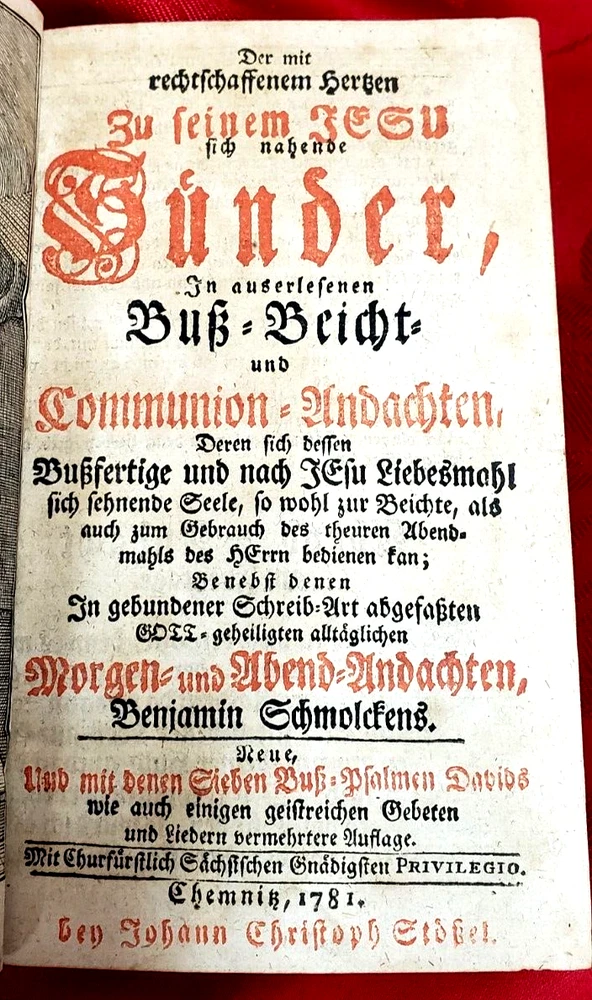 Der mit
rechtschaffenem Hertzen
Zu seinem JESU
sich nahende
Sünder,
In auserlesenen
Buß-Beicht-
und
Communion-Andachten,
Deren sich dessen
Bußfertige und nach JEsu Liebesmahl
sich sehnende Seele, so wohl zur Beichte, als
auch zum Gebrauch des theuren Abend-
mahls des HErrn bedienen kan;
Benebst denen
In gebundener Schreib-Art abgefaßten
GOTT-geheiligten alltäglichen
Morgen- und Abend-Andachten,
Benjamin Schmolckens.
Neue,
Und mit denen Sieben Buß-Psalmen Davids
wie auch einigen geistreichen Gebeten
und Liedern vermehrtere Auflage.
Mit Churfürstlich Sächsischen Gnädigsten PRIVILEGIO.
Chemnitz, 1781.
bey Johann Christoph Stößel.